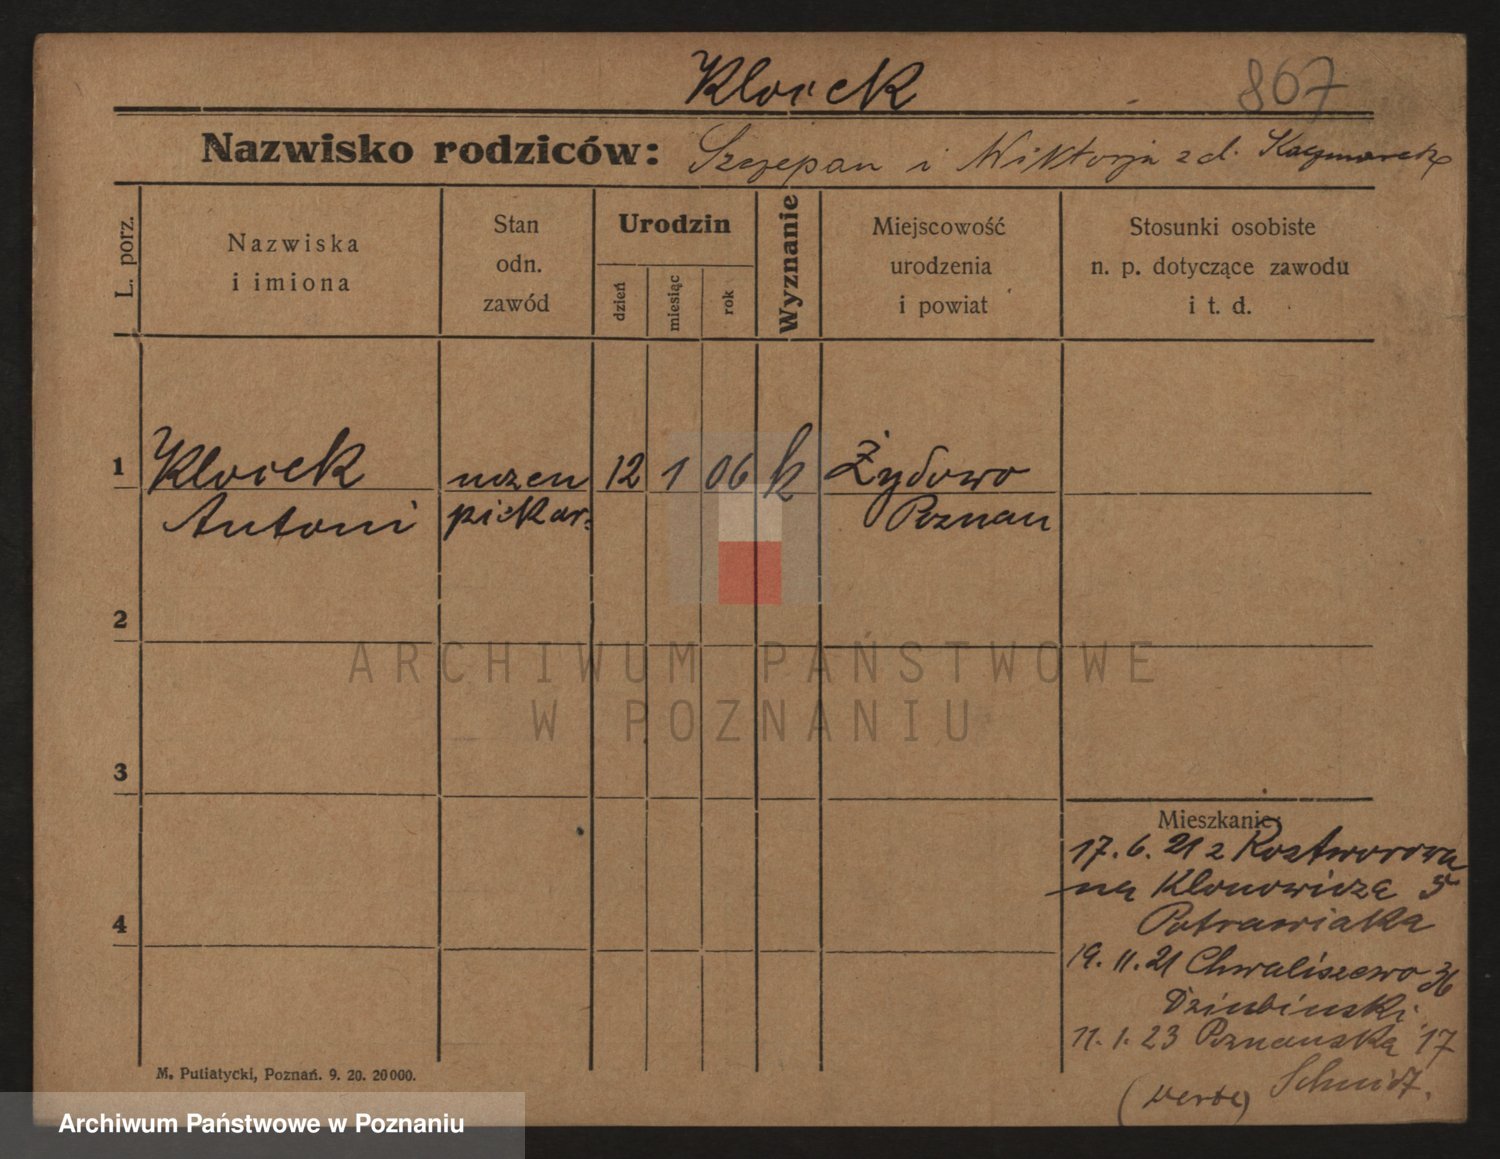 Kloiek
867
Nazwisko rodziców: Szczepan i Wiktorja z d.
L. porz.
Nazwiska i imiona
Stan odn. zawód
Urodzin
dzień
miesiąc
rok
Wyznanie
Miejscowość urodzenia i powiat
Stosunki osobiste n. p. dotyczące zawodu i t. d.
1 Kloiek uczen 12 1 06 k Żydowo
Antoni piekar. Poznan
2
ARCHIWUM PAŃSTWOWE
W POZNANIU
3
Mieszkanie:
17. 6. 21 z Rostworowa
na Klonowicza 5
4
Patrawiaka
19. 11. 21 Chwaliszewo 36
Dziubinski
11. 1. 23 Poznanska 17
Schmidt.
(verte)
M. Putiatycki, Poznań. 9. 20. 20000.
Archiwum Państwowe w Poznaniu